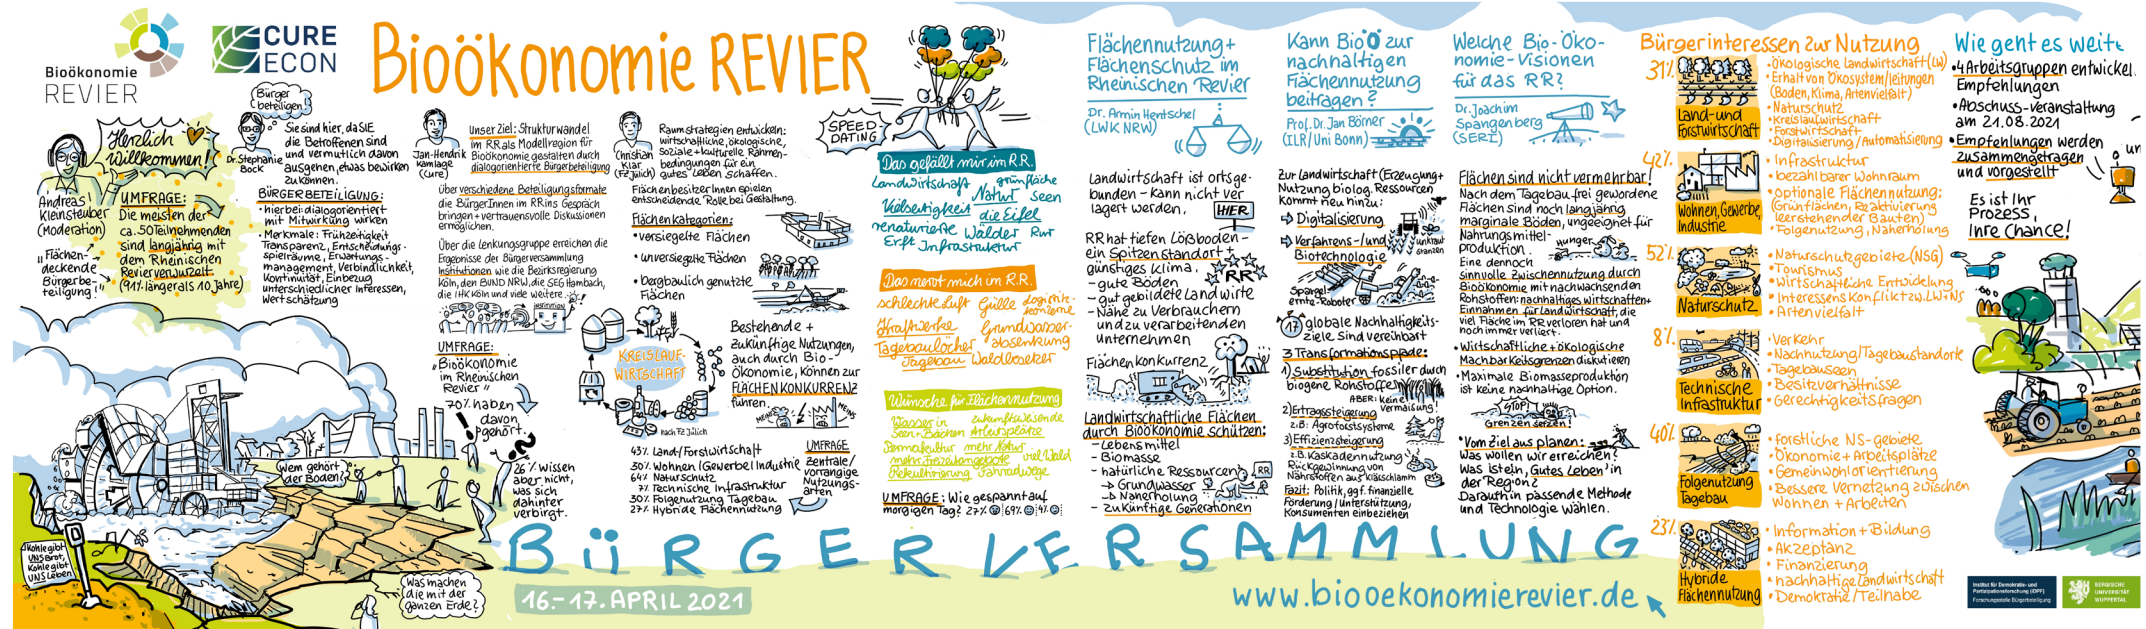 Bioökonomie
REVIER
CURE
ECON
Bioökonomie REVIER
Herzlich
Willkommen!
Andreas
Kleinsteuber
(Moderation)
UMFRAGE:
Die meisten der
ca. 50 Teilnehmenden
sind langjährig mit
dem Rheinischen
Revier verwurzelt
(91% länger als 10 Jahre)
"Flächen-
deckende
Bürgerbe-
teiligung!"
Bürger
beteiligen!
Dr. Stephanie
Bock
Sie sind hier, da SIE
die Betroffenen sind
und vermutlich davon
ausgehen, etwas bewirken
zu können.
BÜRGERBETEILIGUNG:
• hierbei: dialogorientiert
mit Mitwirkung wirken
• Merkmale: Frühzeitigkeit
Transparenz, Entscheidungs-
spielräume, Erwartungs-
management, Verbindlichkeit,
Kontinuität, Einbezug
unterschiedlicher Interessen,
Wertschätzung
Jan-Hendrik
Kamlage
(Cure)
Unser Ziel: Strukturwandel
im RR als Modellregion für
Bioökonomie gestalten durch
dialogorientierte Bürgerbeteiligung
Über verschiedene Beteiligungsformate
die BürgerInnen im RR ins Gespräch
bringen + vertrauensvolle Diskussionen
ermöglichen.
Über die Lenkungsgruppe erreichen die
Ergebnisse der Bürgerversammlung
Institutionen wie die Bezirksregierung
Köln, den BUND NRW, die SEG Hambach,
die IHK Köln und viele weitere.
INSTITUTION
UMFRAGE:
"Bioökonomie
im Rheinischen
Revier"
70% haben
davon
gehört.
26% wissen
aber nicht,
was sich
dahinter
verbirgt.
Christian
Klar
(FZ Jülich)
Raumstrategien entwickeln:
wirtschaftliche, ökologische,
soziale + kulturelle Rahmen-
bedingungen für ein
gutes Leben schaffen.
FlächenbesitzerInnen spielen
entscheidende Rolle bei Gestaltung.
Flächenkategorien:
• versiegelte Flächen
• unversiegelte Flächen
• bergbaulich genutzte
Flächen
KREISLAUF-
WIRTSCHAFT
nach FZ Jülich
Bestehende +
zukünftige Nutzungen,
auch durch Bio-
Ökonomie, können zur
FLÄCHENKONKURRENZ
führen.
MEINS
MEINS
43% Land-/Forstwirtschaft
30% Wohnen/Gewerbe/Industrie
64% Naturschutz
7% Technische Infrastruktur
30% Folgenutzung Tagebau
27% Hybride Flächennutzung
UMFRAGE
Zentrale/
vorrangige
Nutzungs-
arten
SPEED
DATING
Das gefällt mir im R.R.
Landwirtschaft grünfläche
Natur Seen
Vielseitigkeit die Eifel
renaturierte Wälder Rur
Erft Infrastruktur
Das nervt mich im R.R.
schlechte Luft Gülle Logistik-
konzerne
Kraftwerke Grundwasser-
absenkung
Tagebaulöcher
Tagebau Waldbesetzer
Wünsche für Flächennutzung
Wasser in zukunftsweisende
Seen + Bächen Arbeitsplätze
Permakultur mehr Natur
mehr Freizeitangebote viel Wald
Rekultivierung Fahrradwege
UMFRAGE: Wie gespannt auf
morgigen Tag? 27% 69% 4%
Flächennutzung +
Flächenschutz im
Rheinischen Revier
Dr. Armin Hentschel
(LWK NRW)
Landwirtschaft ist ortsge-
bunden – kann nicht ver
lagert werden.
HIER
RR hat tiefen Lößboden –
ein Spitzenstandort +
günstiges Klima.
– gute Böden
– gut gebildete Landwirte
– Nähe zu Verbrauchern
und zu verarbeitenden
unternehmen
RR
Flächenkonkurrenz
Landwirtschaftliche Flächen
durch Bioökonomie schützen:
– Lebensmittel
– Biomasse
– natürliche Ressourcen
→ Grundwasser
→ Naherholung
– zukünftige Generationen
RR
Kann BioÖ zur
nachhaltigen
Flächennutzung
beitragen?
Prof. Dr. Jan Börner
(ILR/Uni Bonn)
Zur Landwirtschaft (Erzeugung +
Nutzung biolog. Ressourcen
kommt neu hinzu:
⇒ Digitalisierung
⇒ Verfahrens-/und
Biotechnologie
unkraut
Spargel-
ernte-Roboter
17 globale Nachhaltigkeits-
ziele. Sind vereinbart
3 Transformationspfade:
1) Substitution fossiler durch
biogene Rohstoffe
ABER: keine
Vermaisung!
2) Ertragssteigerung
z.B. Agroforstsysteme
3) Effizienzsteigerung
z.B. Kaskadennutzung
Rückgewinnung von
Nährstoffen aus Klärschlamm
Fazit: Politik, ggf. finanzielle
Förderung/Unterstützung,
Konsumenten einbeziehen
Welche Bio-Öko-
nomie-Visionen
für das RR?
Dr. Joachim
Spangenberg
(SERI)
Flächen sind nicht vermehrbar!
Nach dem Tagebau frei gewordene
Flächen sind noch langjährig
marginale Böden, ungeeignet für
Nahrungsmittel-
produktion.
hunger
Eine dennoch
sinnvolle Zwischennutzung durch
Bioökonomie mit nachwachsenden
Rohstoffen: nachhaltiges wirtschaften +
Einnahmen für Landwirtschaft, die
viel Fläche im RR verloren hat und
noch immer verliert.
• Wirtschaftliche + ökologische
Machbarkeitsgrenzen diskutieren
• Maximale Biomasseproduktion
ist keine nachhaltige Option.
STOP!
Grenzen setzen!
• Vom Ziel aus planen:
Was wollen wir erreichen?
Was ist ein "Gutes Leben" in
der Region?
Daraufhin passende Methode
und Technologie wählen.
Bürgerinteressen zur Nutzung
31%
Land- und
Forstwirtschaft
• Ökologische Landwirtschaft (LW)
• Erhalt von Ökosystemleistungen
(Boden, Klima, Artenvielfalt)
• Naturschutz
• Kreislaufwirtschaft
• Forstwirtschaft
• Digitalisierung/Automatisierung
42%
Wohnen, Gewerbe,
Industrie
• Infrastruktur
• bezahlbarer Wohnraum
• optionale Flächennutzung:
(Grünflächen, Reaktivierung
leerstehender Bauten)
• Folgenutzung, Naherholung
52%
Naturschutz
• Naturschutzgebiete (NSG)
• Tourismus
• Wirtschaftliche Entwicklung
• Interessenskonflikt zw. LW + NS
• Artenvielfalt
8%
Technische
Infrastruktur
• Verkehr
• Nachnutzung/Tagebaustandorte
• Tagebauseen
• Besitzverhältnisse
• Gerechtigkeitsfragen
40%
Folgenutzung
Tagebau
• forstliche NS-gebiete
• Ökonomie + Arbeitsplätze
• Gemeinwohlorientierung
• Bessere Vernetzung zwischen
Wohnen + Arbeiten
23%
Hybride
Flächennutzung
• Information + Bildung
• Akzeptanz
• Finanzierung
• nachhaltige Landwirtschaft
• Demokratie/Teilhabe
Wie geht es weite
• 4 Arbeitsgruppen entwickel
Empfehlungen
• Abschuss-veranstaltung
am 21.08.2021
• Empfehlungen werden
zusammengetragen
und vorgestellt
un
Es ist Ihr
Prozess,
Ihre Chance!
Wem gehört
der Boden?
Kohle gibt
UNS Brot,
Kohle gibt
UNS Leben
Was machen
die mit der
ganzen Erde?
BÜRGERVERSAMMLUNG
16.–17. APRIL 2021
www.biooekonomierevier.de
Institut für Demokratie- und
Partizipationsforschung (IDPF)
Forschungsstelle Bürgerbeteiligung
BERGISCHE
UNIVERSITÄT
WUPPERTAL